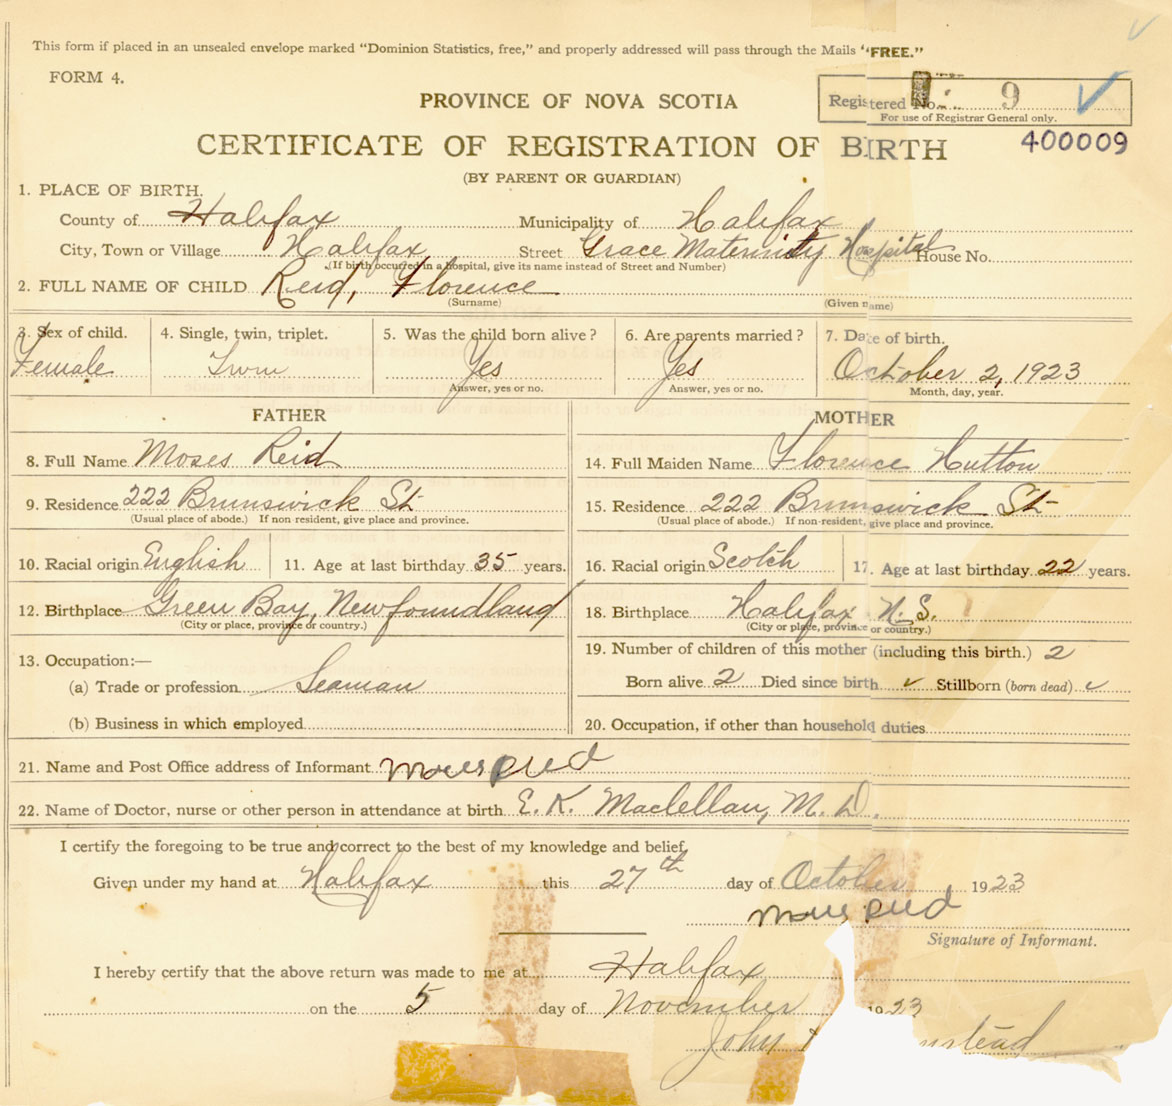 This form if placed in an unsealed envelope marked "Dominion Statistics, free," and properly addressed will pass through the Mails "FREE."
FORM 4.
PROVINCE OF NOVA SCOTIA
Registered No. 9
For use of Registrar General only.
CERTIFICATE OF REGISTRATION OF BIRTH
400009
(BY PARENT OR GUARDIAN)
1. PLACE OF BIRTH.
County of Halifax Municipality of Halifax
City, Town or Village Halifax Street Grace Maternity Hospital House No.
(If birth occurred in a hospital, give its name instead of Street and Number)
2. FULL NAME OF CHILD Reid, Florence
(Surname) (Given name)
3. Sex of child. 4. Single, twin, triplet. 5. Was the child born alive? 6. Are parents married? 7. Date of birth.
Female Twin Yes Yes October 2, 1923
Answer, yes or no. Answer, yes or no. Month, day, year.
FATHER MOTHER
8. Full Name Moses Reid 14. Full Maiden Name Florence Hutton
9. Residence 222 Brunswick St 15. Residence 222 Brunswick St
(Usual place of abode.) If non-resident, give place and province. (Usual place of abode.) If non-resident, give place and province.
10. Racial origin English 11. Age at last birthday 35 years. 16. Racial origin Scotch 17. Age at last birthday 22 years.
12. Birthplace Green Bay, Newfoundland 18. Birthplace Halifax N.S.
(City or place, province or country.) (City or place, province or country.)
13. Occupation:— 19. Number of children of this mother (including this birth.) 2
(a) Trade or profession Seaman Born alive 2 Died since birth ✓ Stillborn (born dead) ✓
(b) Business in which employed 20. Occupation, if other than household duties
21. Name and Post Office address of Informant Moses Reid
22. Name of Doctor, nurse or other person in attendance at birth E. K. Maclellan, M.D.
I certify the foregoing to be true and correct to the best of my knowledge and belief.
Given under my hand at Halifax this 27th day of October 1923
Moses Reid
Signature of Informant.
I hereby certify that the above return was made to me at Halifax
on the 5 day of November 1923
John